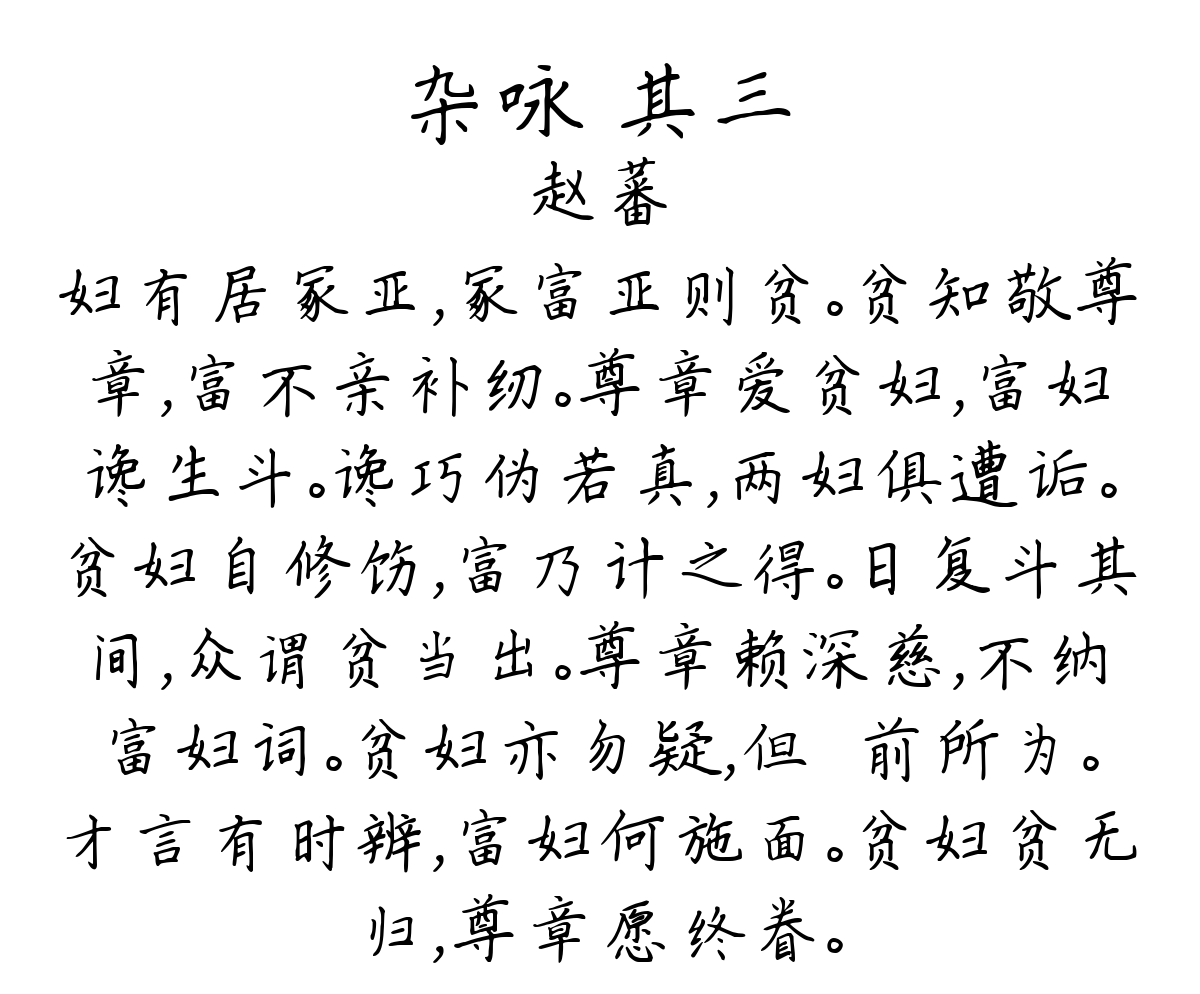 杂咏 其三
赵蕃
妇有居冢亚,冢富亚则贫。贫知敬尊
章,富不亲补纫。尊章爱贫妇,富妇
谗生斗。谗巧伪若真,两妇俱遭诟。
贫妇自修饬,富乃计之得。日复斗其
间,众谓贫当出。尊章赖深慈,不纳
富妇词。贫妇亦勿疑,但 前所为。
才言有时辨,富妇何施面。贫妇贫无
归,尊章愿终眷。